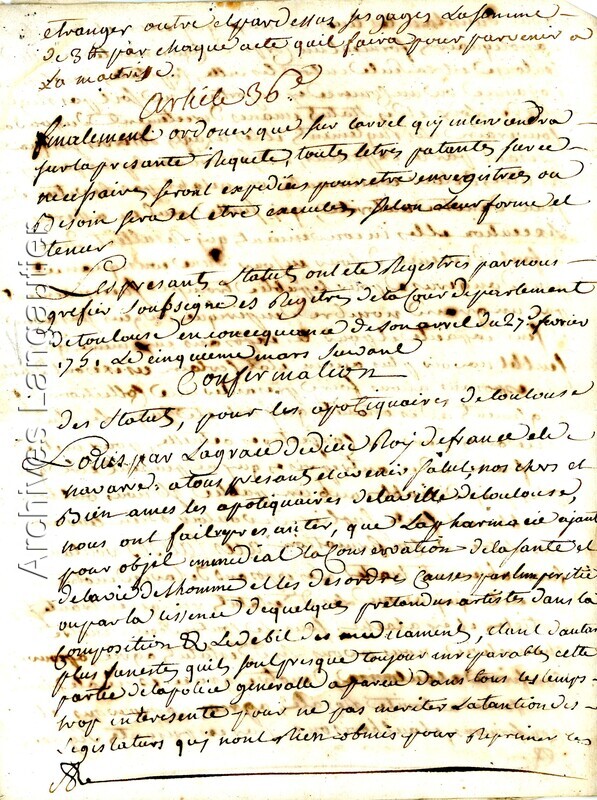 etranger outre et pardessus ses gages la somme
de 3tt par chaque acte quil faira pour parvenir a
La maitrise.
Article 36e
finalement ordoner que sur larrel qui interviendra
sur la presante Requete, toutes letres patentes sur ce
necessaires seront expediées pour etre enregistrées ou
Besoin sera et etre executées selon leur forme et
teneur
Les presants Statuts ont eté Registrés par nous
grefier soubsigné es Registres de la Cour de parlement
de toulouse en consequance de son arrel du 27e fevrier
1751. Le cinquieme mars suivant
Confirmation
des Statuts, pour les apotiquaires de toulouse
Louis par la grace de dieu Roy de france et de
navarre; a tous presant et avenir Salut, nos chers et
Bien amés les apotiquaires de la ville de toulouse,
nous ont fait representer, que La pharmacie ajant
pour objet immediat la Conservation de la santé et
de la vie de l'homme et les desordre Causés par l'imperitie
ou par la lissence de quelques pretendus artistes dans la
Composition & Le debit des medicament, etant d'autant
plus funestes quils sont presque toujour irreparables cette
partie de la police generalle a pareu dans tous les temps
trop interesente pour ne pas meriter latantion des
Legislateurs qui nont Rien obmis pour Reprimer les
Archives Langautier